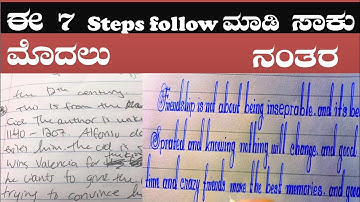 ಈ 7 Steps follow ಮಾಡಿ ಸಾಕು
ಮೊದಲು ನಂತರ
century.
This is from the
Cid. The author is
1140 - 1207. Alfonso
him. the cid is
wins Valencia for
he wants to give the
trying to convince
Friendship is not about being inseprable. and it's be
Sprated and knowing nothing will change. and good
time and crazy friends make the best memories. and good